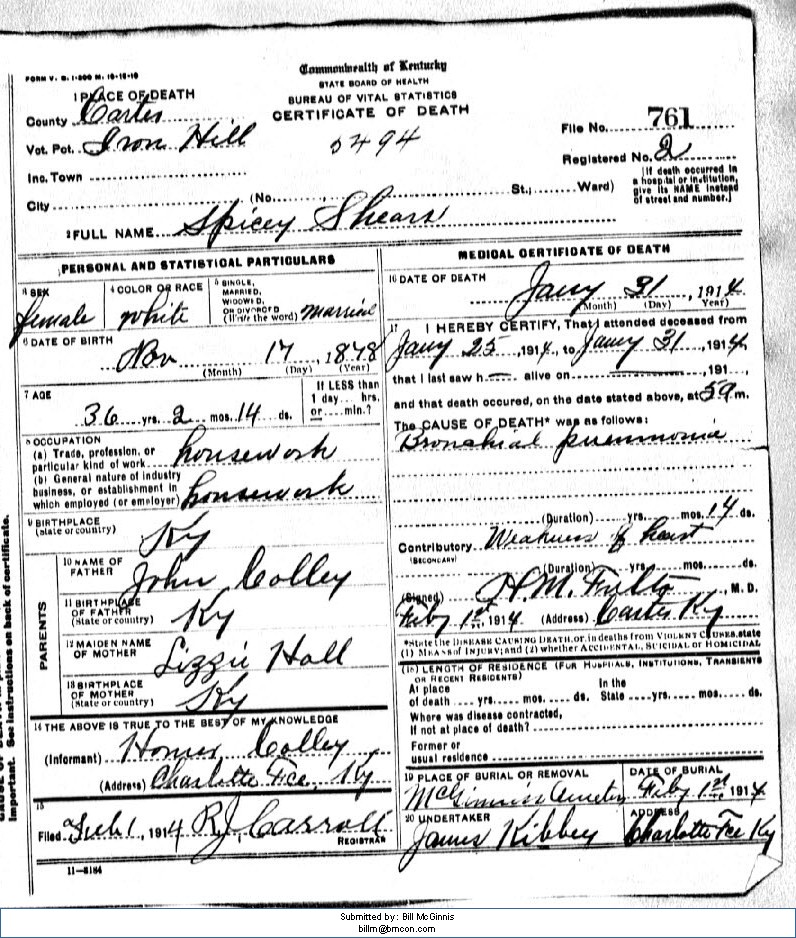 FORM V. S. 1-200 M. 10-10-10
Commonwealth of Kentucky
STATE BOARD OF HEALTH
BUREAU OF VITAL STATISTICS
CERTIFICATE OF DEATH
5494
1 PLACE OF DEATH
County Carter
Vot. Pct. Iron Hill
Inc. Town
City (No. St.; Ward)
File No. 761
Registered No. 2
[If death occurred in a hospital or institution, give its NAME instead of street and number.]
2 FULL NAME Spicey Shears
PERSONAL AND STATISTICAL PARTICULARS
3 SEX female
4 COLOR OR RACE white
5 SINGLE, MARRIED, WIDOWED, OR DIVORCED (Write the word) Married
6 DATE OF BIRTH
Nov 17, 1878
(Month) (Day) (Year)
7 AGE
36 yrs. 2 mos. 14 ds.
If LESS than
1 day... hrs.
or.... min.?
8 OCCUPATION
(a) Trade, profession, or
particular kind of work housework
(b) General nature of industry
business, or establishment in
which employed (or employer) housework
9 BIRTHPLACE
(state or country) Ky
PARENTS
10 NAME OF
FATHER John Colley
11 BIRTHPLACE
OF FATHER
(State or country) Ky
12 MAIDEN NAME
OF MOTHER Lizzie Hall
13 BIRTHPLACE
OF MOTHER
(State or country) Ky
14 THE ABOVE IS TRUE TO THE BEST OF MY KNOWLEDGE
(Informant) Homer Colley
(Address) Charlotte Fce, Ky
15
Filed Feb 1, 1914 R J Carroll
REGISTRAR
11-3184
MEDICAL CERTIFICATE OF DEATH
16 DATE OF DEATH
Jany 31, 1914
(Month) (Day) (Year)
17 I HEREBY CERTIFY, That I attended deceased from
Jany 25, 1914, to Jany 31, 1914,
that I last saw h— alive on, 191...,
and that death occured, on the date stated above, at 5 a m.
The CAUSE OF DEATH* was as follows:
Bronchial pneumonia
(Duration) yrs. mos. 14 ds.
Contributory Weakness of heart
(SECONDARY)
(Duration) yrs. mos. ds.
(Signed) H. M. , M. D.
Feby 1st, 1914 (Address) Carter Ky
*State the DISEASE CAUSING DEATH, or, in deaths from VIOLENT CAUSES, state
(1) MEANS of INJURY; and (2) whether ACCIDENTAL, SUICIDAL or HOMICIDAL
(18) LENGTH OF RESIDENCE (FOR HOSPITALS, INSTITUTIONS, TRANSIENTS
OR RECENT RESIDENTS)
At place In the
of death yrs. mos. ds. State yrs. mos. ds.
Where was disease contracted,
If not at place of death?
Former or
usual residence
19 PLACE OF BURIAL OR REMOVAL
DATE OF BURIAL
Feby 1st, 1914
20 UNDERTAKER
James Kibbey
ADDRESS
Charlotte Fce Ky
important. See instructions on back of certificate.
Submitted by: Bill McGinnis
billm@bmcon.com